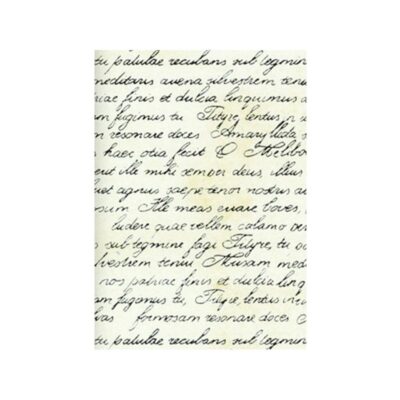 tu patulae recubans sub tegmin
meditaris avena silvestrem tenu
riae finis et dulcia linquimus a
am fugimus tu, Tityre, lentus in
m resonare doces Amaryllida s
s haec otia fecit O Melibo
erit ille mihi semper deus, illius
uet agnus saepe tener nostris
sum Ille meas errare boves,
ludere quae vellem calamo
s sub tegmine fagi Tityre, tu
lvestrem tenui Musam med
nos patriae finis et dulcia linq
m fugimus tu, Tityre, lentus in
lvas formosam resonare doces
tu patulae recubans sub tegmin